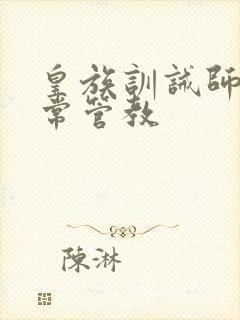 皇族訓誡師
常管教
陳淋